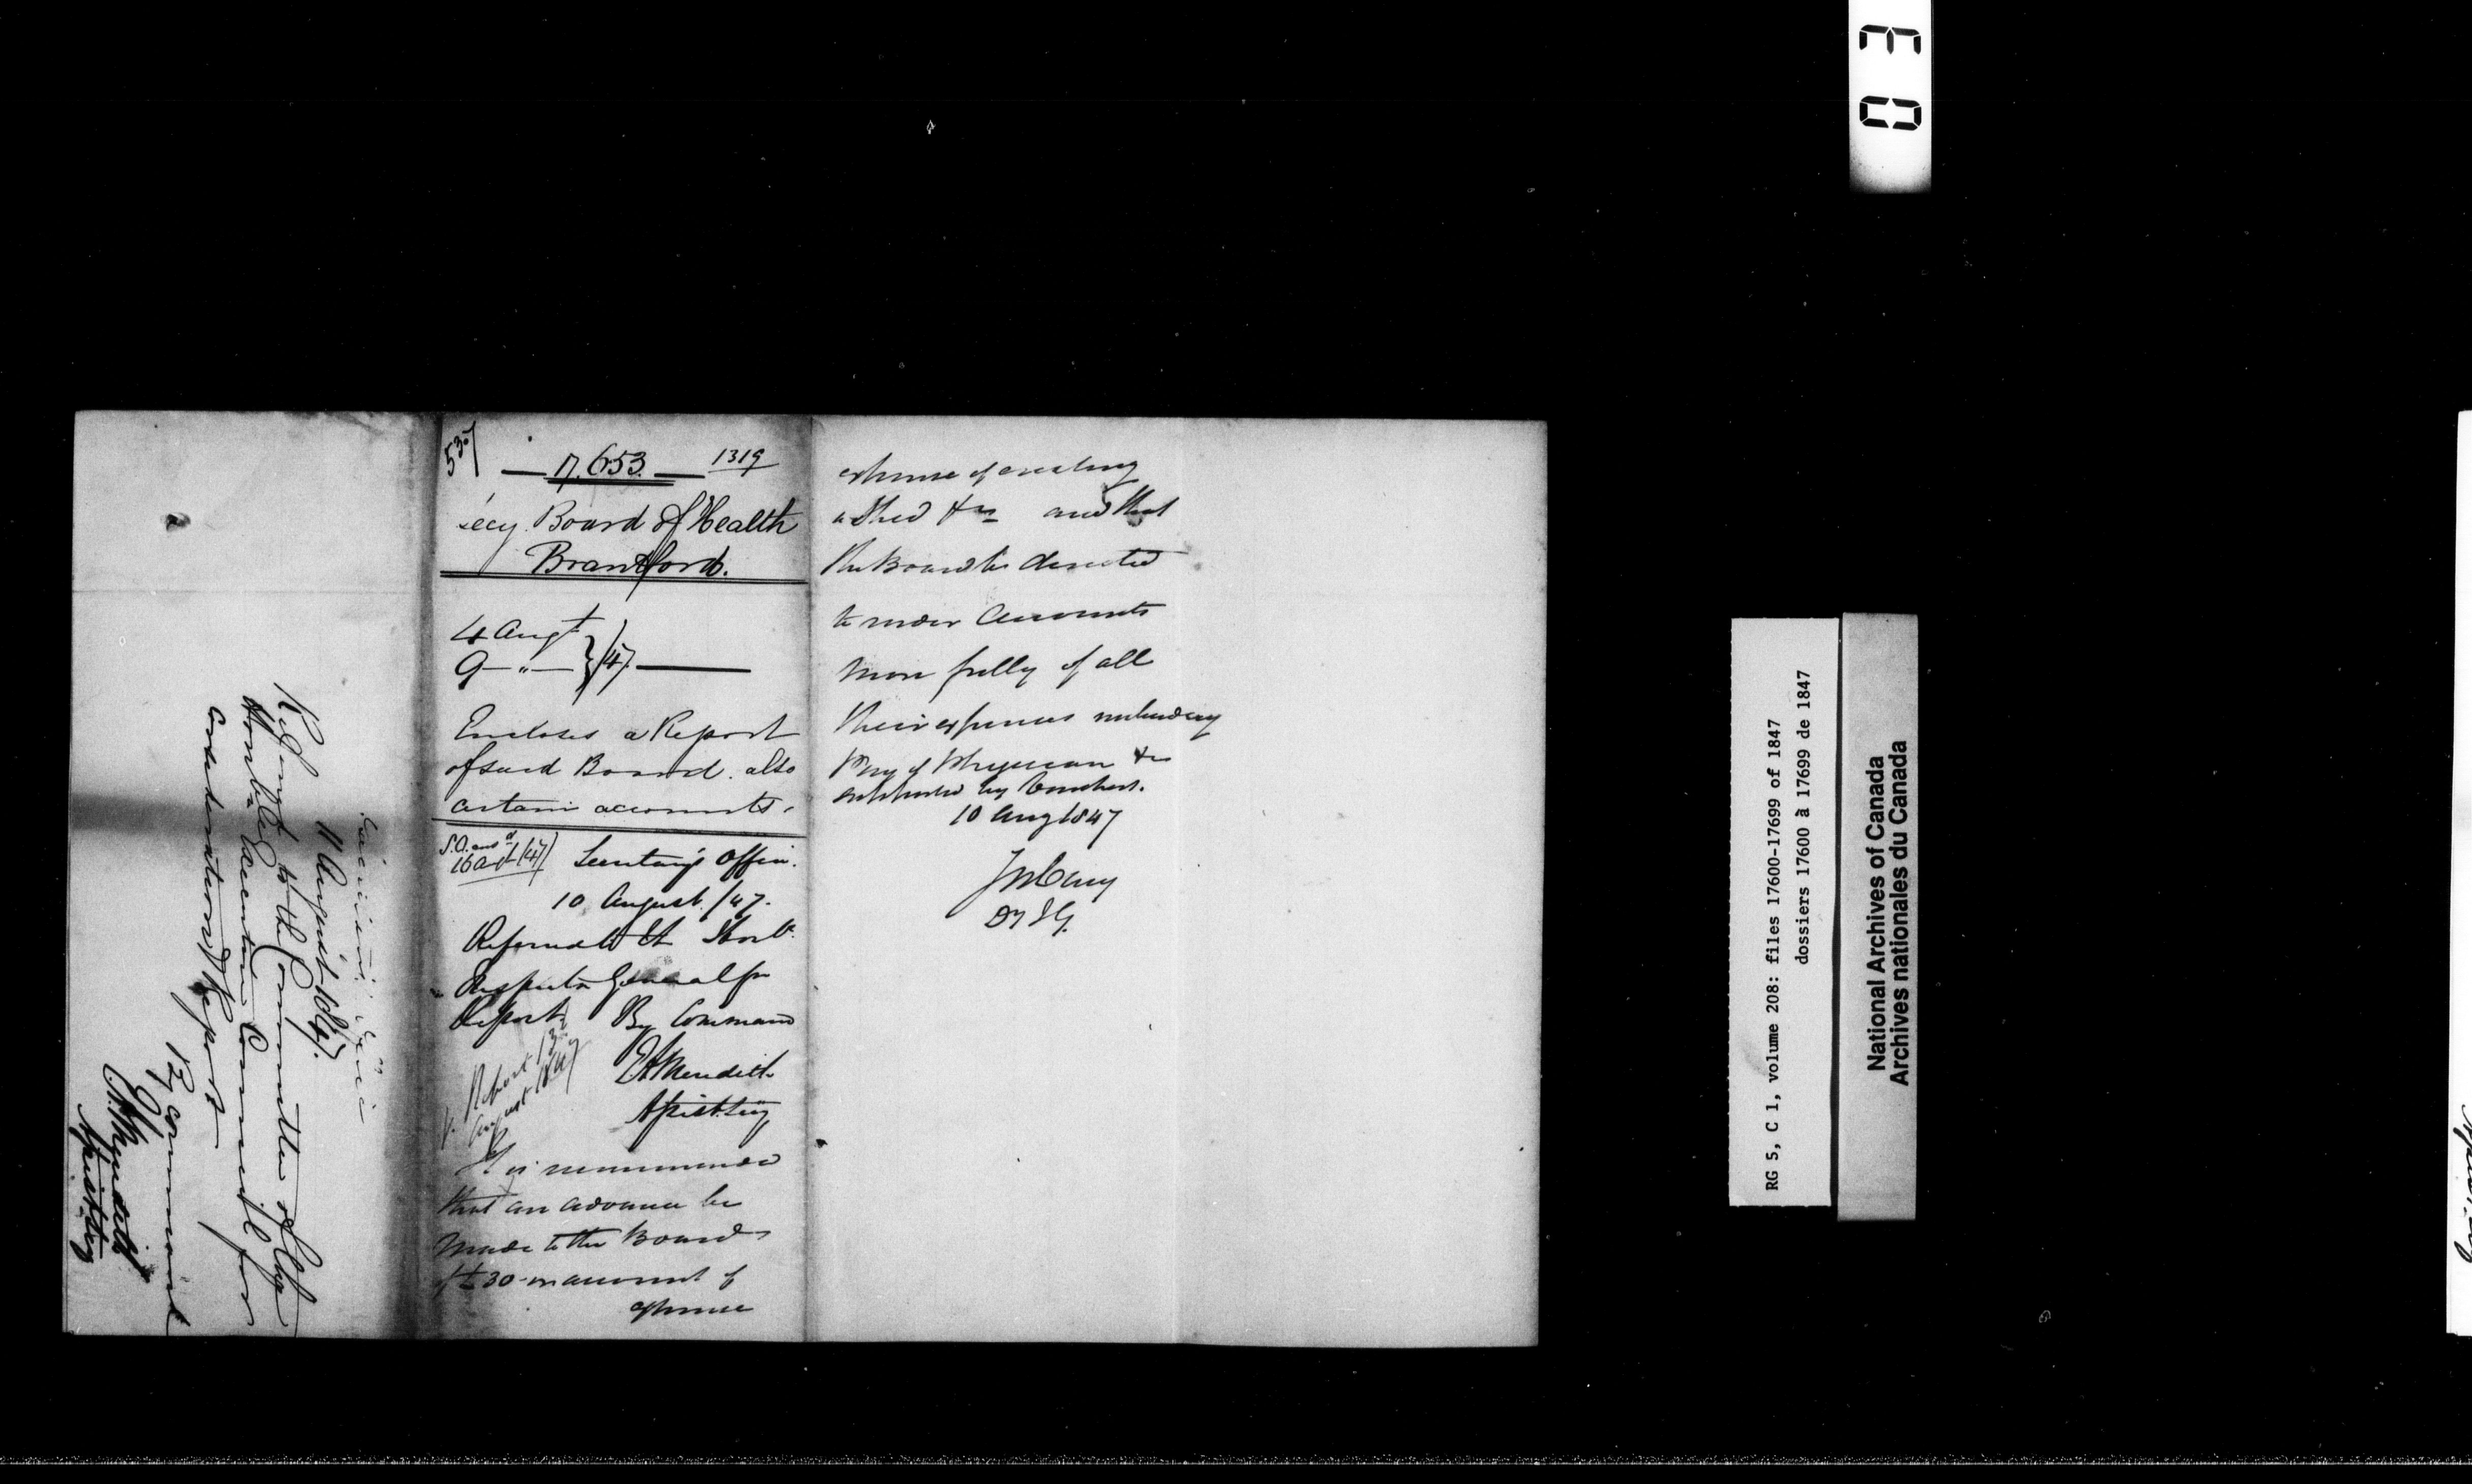 537
17.653. 1319
Secy. Board of Health
Brantford.
4 Augt
9 — " — } /47.
Encloses a Report
of said Board. also
certain accounts.
S.O. ansd
16 Augt /47
Secretary's Office.
10 August /47.
Referred to the Honble.
Inspector General for
Report. By Command
E A Meredith
Asst. Secy
V. Report 13
August 1847
It is recommended
that an advance be
made to the Board
of £30 on account of
expense
expense of erecting
a Shed &c and that
the Board be directed
to render Accounts
more fully of all
their expenses including
Pay of Physician &c
supported by Vouchers.
10 Aug 1847
J W Cary
D I G.
11 August 1847.
Referred to the Committee of the
Honble. Executive Council for
consideration & Report
By command
E. A. Meredith
Asst. Secy
RG 5, C 1, volume 208: files 17600-17699 of 1847
dossiers 17600 à 17699 de 1847
National Archives of Canada
Archives nationales du Canada